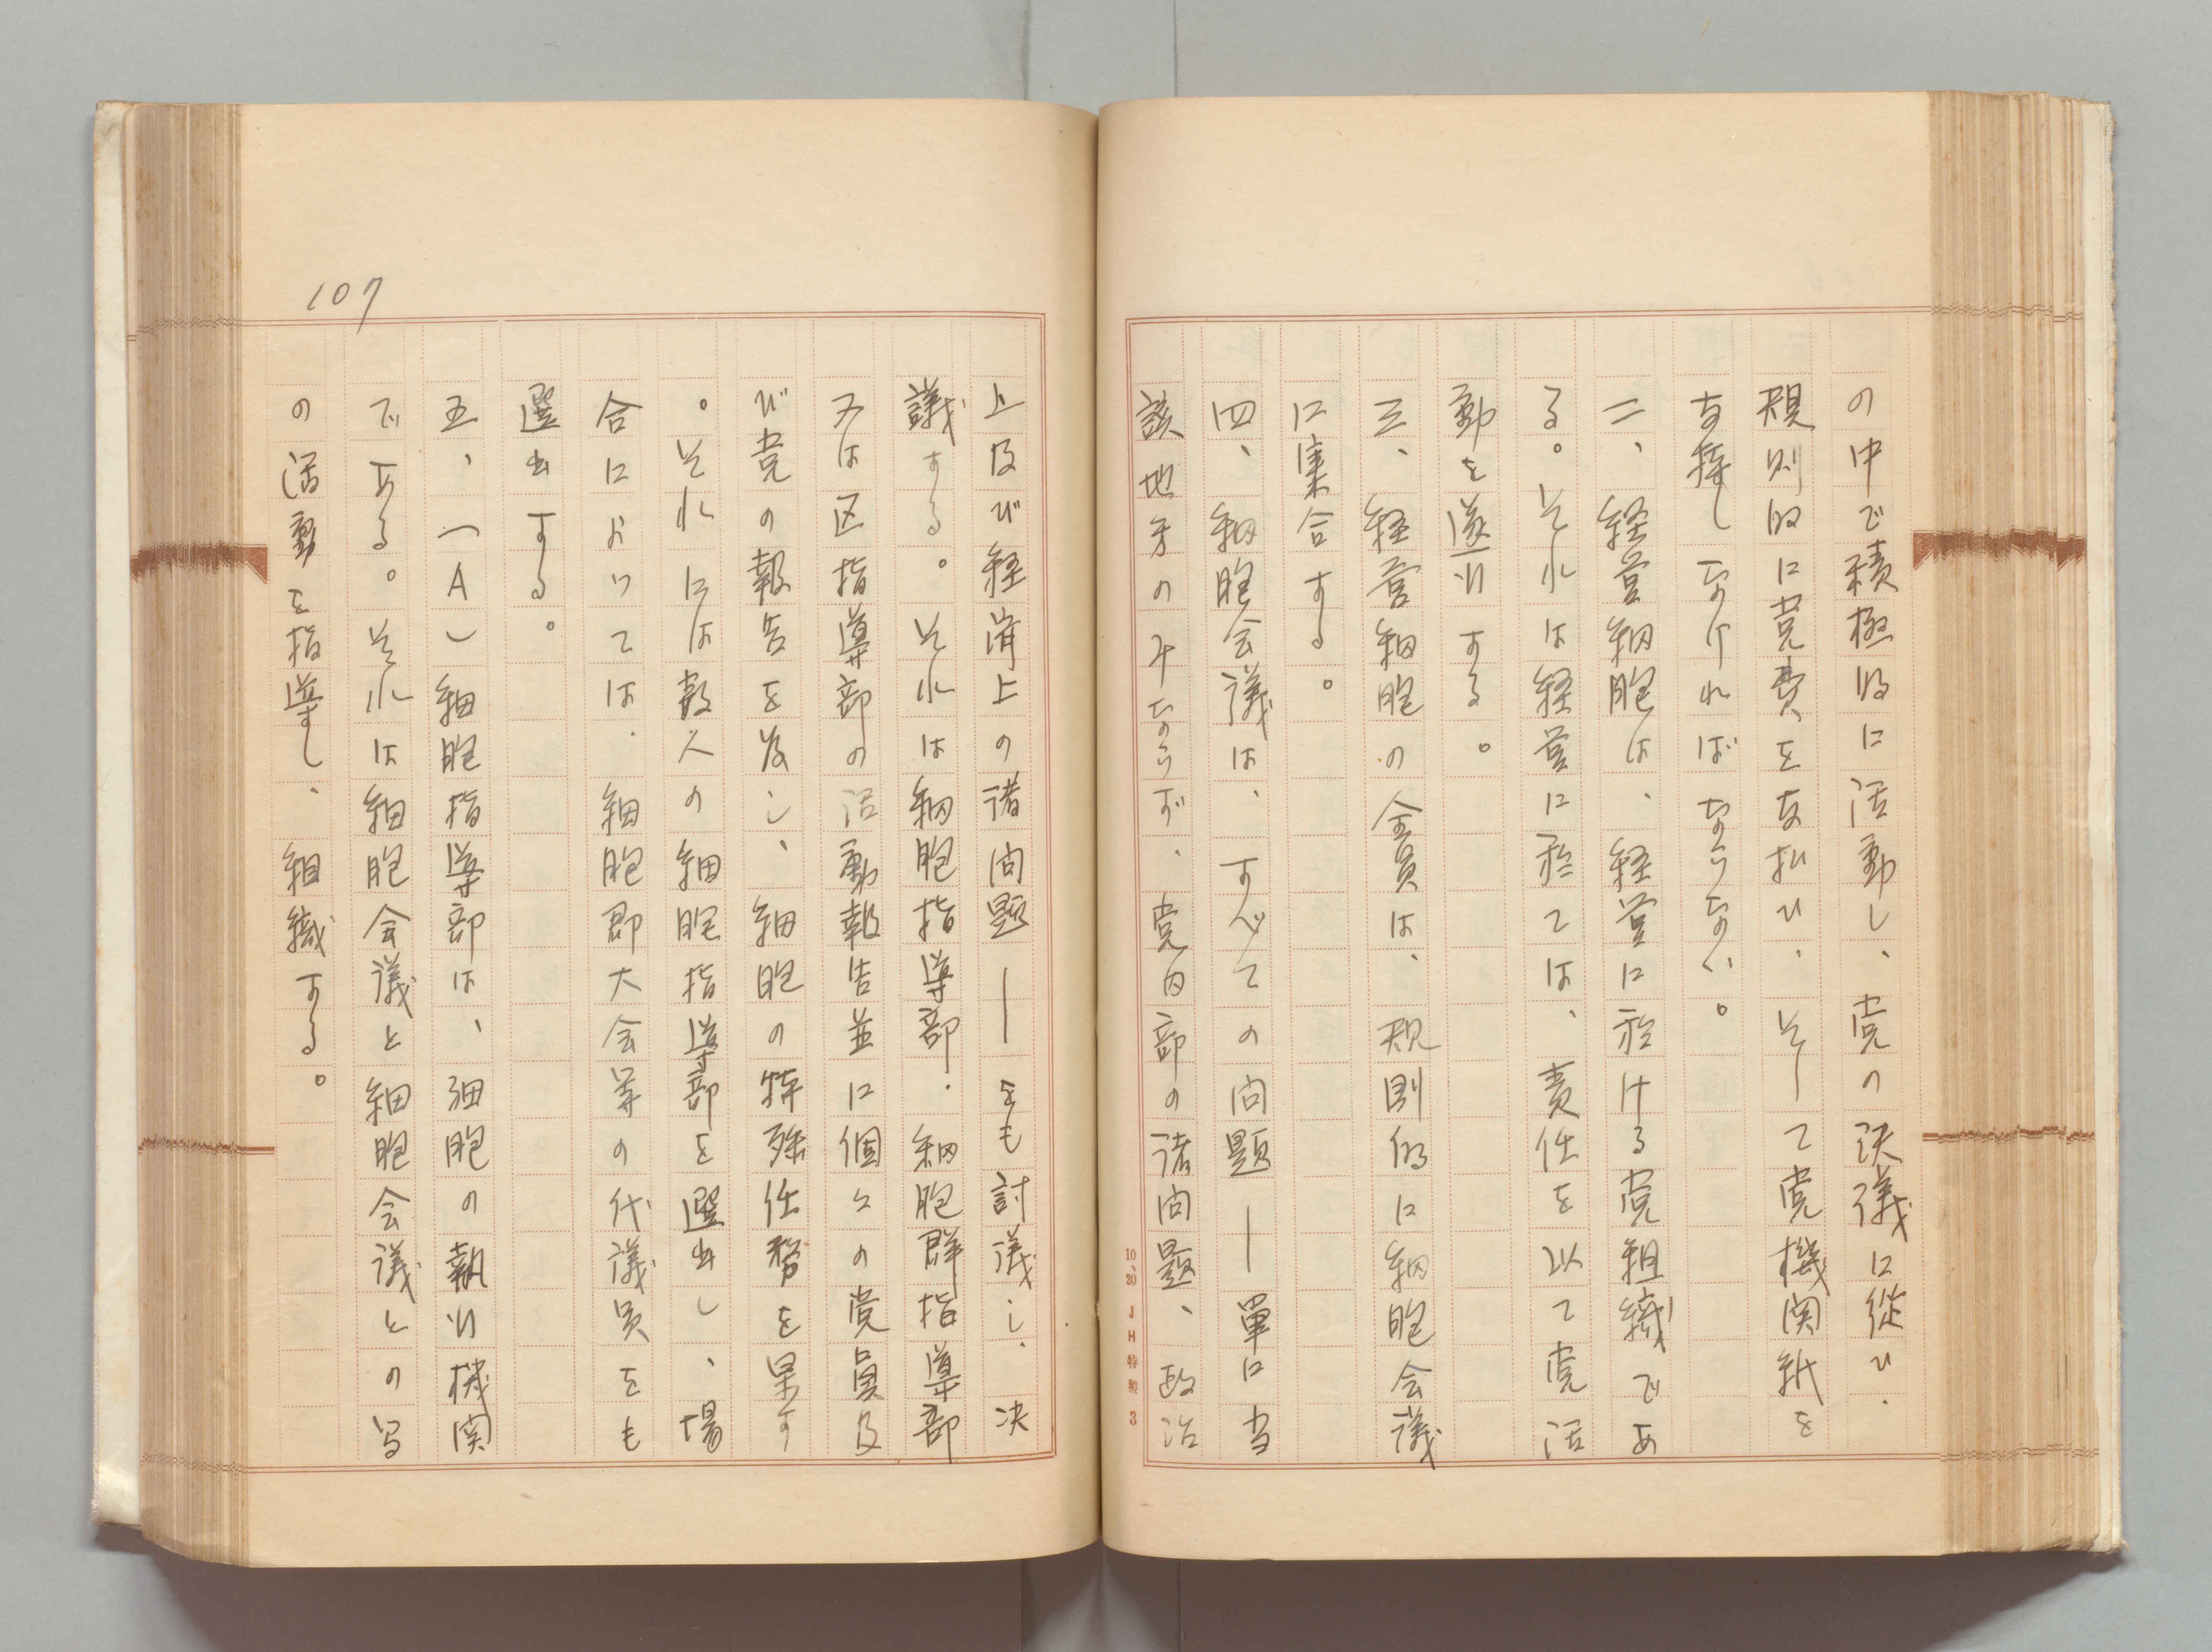 の中で積極的に活動し、党の決議に従ひ、
規則的に党費を支払ひ、そして党機関紙を
支持しなければならない。
二、経営細胞は、経営に於ける党組織であ
る。それは経営に於ては、責任を以て党活
動を遂行する。
三、経営細胞の全員は、規則的に細胞会議
に集合する。
四、細胞会議は、すべての問題―単に当
該地方のみならず、党内部の諸問題、政治
10、20 JH特製 3
上及び経済上の諸問題―をも討議し、決
議する。それは細胞指導部、細胞群指導部
又は区指導部の活動報告並に個々の党員及
び党の報告を及し、細胞の特殊任務を果す
。それには数人の細胞指導部を選出し、場
合によつては、細胞郡大会等の代議員をも
選出する。
五、(A)細胞指導部は、細胞の執行機関
である。それは細胞会議と細胞会議との
の活動を指導し、組織する。
107